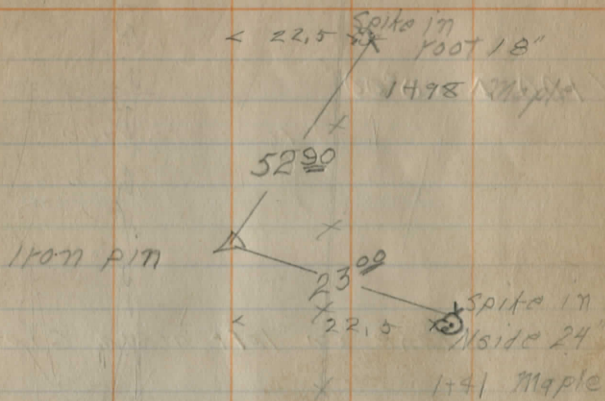 < 22,5 Spike in
root 18"
1498 Maple
52 90
Iron pin
23 00
Spike in
< 22,5 N side 24"
1+41 Maple